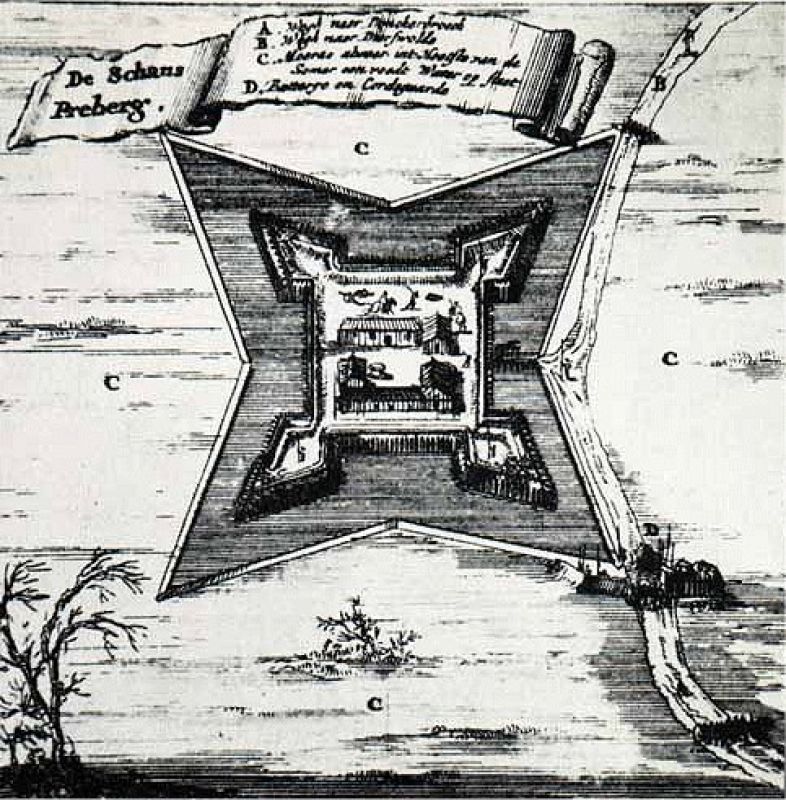 De Schans
Preberg.
A. Wegh naer Donckerbroeck
B. Wegh naer Duerswolde
C. Moeras alwaer int Hooghste van de
Somer een voedt Water op staet
D. Batterye en Cordeguarde
C
B
C
C
D
C